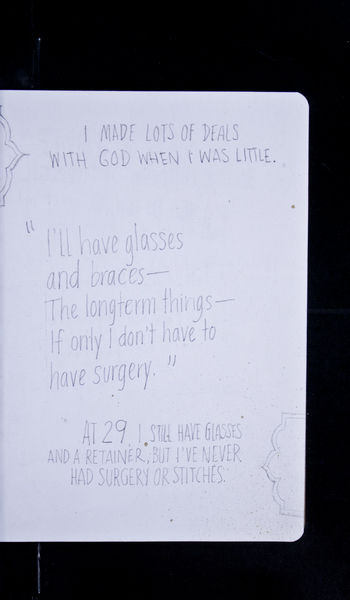 I MADE LOTS OF DEALS
WITH GOD WHEN I WAS LITTLE.
"I'll have glasses
and braces—
The longterm things—
If only I don't have to
have surgery."
AT 29, I STILL HAVE GLASSES
AND A RETAINER, BUT I'VE NEVER
HAD SURGERY OR STITCHES.